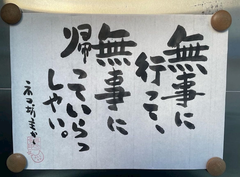 無事に
行って、
無事に
帰って
いらっ
しゃい。